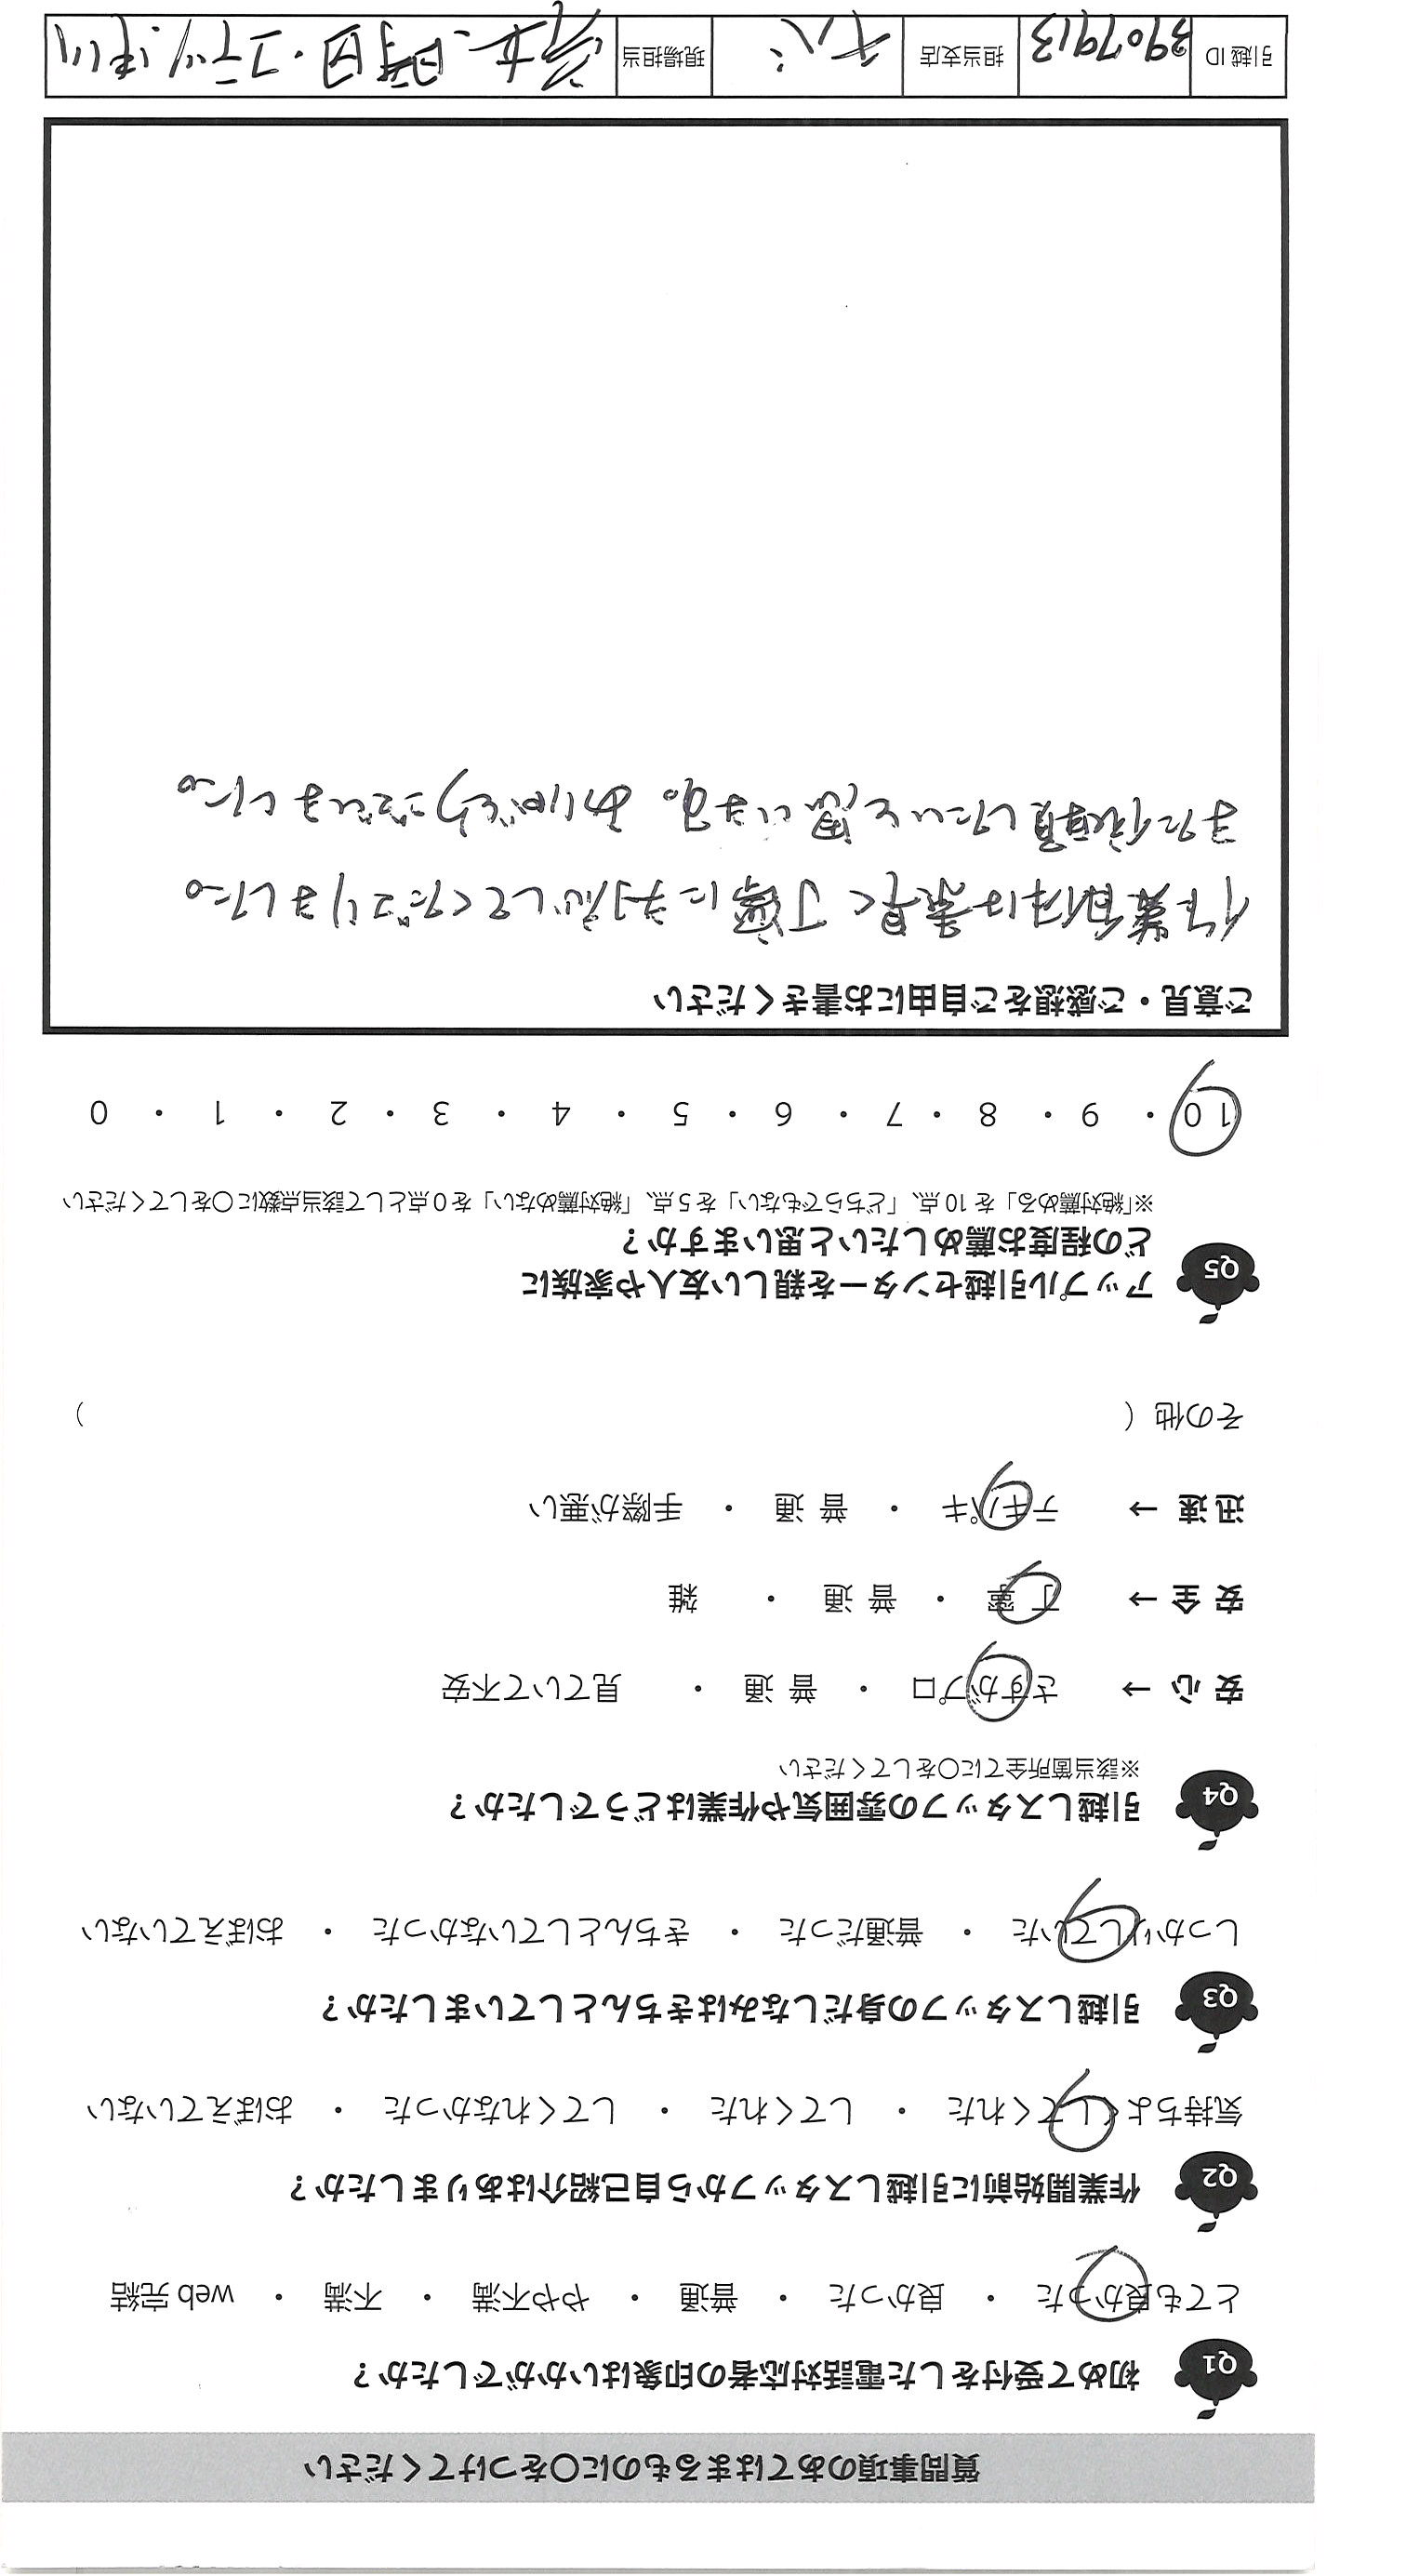 質問事項のあてはまるものに○をつけてください
Q1 初めて受付をした電話対応者の印象はいかがでしたか？
とても良かった ・ 良かった ・ 普通 ・ やや不満 ・ 不満 ・ web 完結
Q2 作業開始前に引越しスタッフから自己紹介はありましたか？
気持ちよくしてくれた ・ してくれた ・ してくれなかった ・ おぼえていない
Q3 引越しスタッフの身だしなみはきちんとしていましたか？
しっかりしていた ・ 普通だった ・ きちんとしていなかった ・ おぼえていない
Q4 引越しスタッフの雰囲気や作業はどうでしたか？
※該当箇所全てに○をしてください
安 心 → さすがプロ ・ 普 通 ・ 見ていて不安
安 全 → 丁 寧 ・ 普 通 ・ 雑
迅 速 → テキパキ ・ 普 通 ・ 手際が悪い
その他（ ）
Q5 アップル引越センターを親しい友人や家族に
どの程度お薦めしたいと思いますか？
※「絶対薦める」を 10 点、「どちらでもない」を 5 点、「絶対薦めない」を 0 点として該当点数に○をしてください
10 ・ 9 ・ 8 ・ 7 ・ 6 ・ 5 ・ 4 ・ 3 ・ 2 ・ 1 ・ 0
ご意見・ご感想をご自由にお書きください
作業自体は素早く丁寧に対応してくださりました。
また依頼したいと思います。ありがとうございました。
引越 ID 3907913 担当支店 千八 現場担当